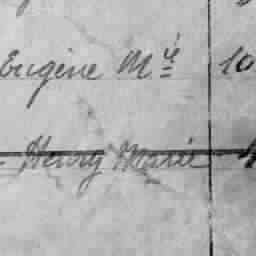 Eugène Mie 10
Henry Marie